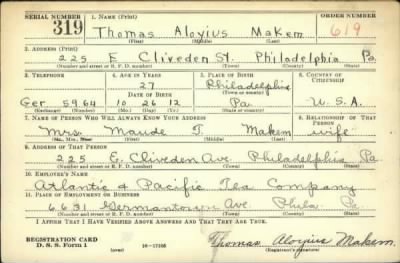 SERIAL NUMBER 1. NAME (Print) ORDER NUMBER
319 Thomas Aloyius Makem 619
(First) (Middle) (Last)
2. ADDRESS (Print)
225 E Cliveden St. Philadelphia Pa.
(Number and street or R. F. D. number) (Town) (County) (State)
3. TELEPHONE 4. AGE IN YEARS 5. PLACE OF BIRTH 6. COUNTRY OF CITIZENSHIP
27 Philadelphia
DATE OF BIRTH (Town or county)
Ger 5964 10 26 12 Pa. U. S. A.
(Exchange) (Number) (Mo.) (Day) (Yr.) (State or country)
7. NAME OF PERSON WHO WILL ALWAYS KNOW YOUR ADDRESS 8. RELATIONSHIP OF THAT PERSON
Mrs. Maude T. Makem wife
(Mr., Mrs., Miss) (First) (Middle) (Last)
9. ADDRESS OF THAT PERSON
225 E. Cliveden Ave Philadelphia Pa
(Number and street or R. F. D. number) (Town) (County) (State)
10. EMPLOYER'S NAME
Atlantic & Pacific Tea Company
11. PLACE OF EMPLOYMENT OR BUSINESS
6631 Germantown Ave Phila. Pa
(Number and street or R. F. D. number) (Town) (County) (State)
I AFFIRM THAT I HAVE VERIFIED ABOVE ANSWERS AND THAT THEY ARE TRUE.
REGISTRATION CARD
D. S. S. Form 1 (over) 16—17105 Thomas Aloyius Makem.
(Registrant's signature)